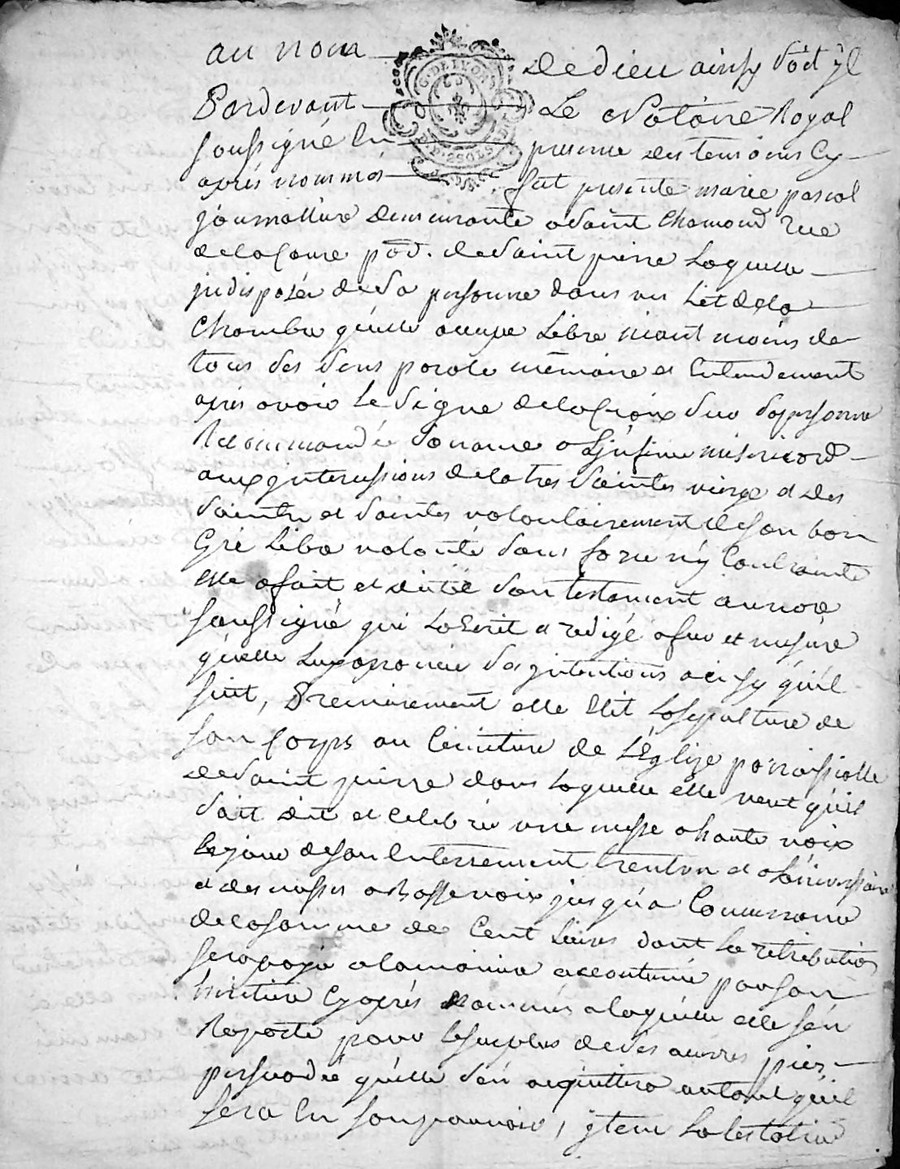 au nom de dieu ainsy soit jl
Pardevant Le Notaire Royal
soussigné En presence des temoins Cy
après nommés fut presente marie pascal
journalliere demeurante a Saint Chamond Rue
de la foire pød. de Saint pierre Laquelle
jndisposée de Sa personne dans un Lit de la
Chambre quelle occupe Libre neant moins de
tous Ses Sens parole mémoire et Entendement
apres avoir Le Signe de la Croix Sur Sa personne
Recommandé Son ame a L'jnfinie misericord
aux jntercessions de la tres Sainte vierge et des
Saints et Saintes volontairement de Son bon
Gré Libre volonté Sans force ny Contrainte
elle a fait et dicté Son testament au nore
soussigné qui La Ecrit et redigé a fur et mesure
quelle Sa jntentions ainsy quil
suit, Premierement elle Elit La Sepulture de
son Corps au Cemitiere de L'Eglize parroissialle
de Saint pierre dans Laquelle elle veut quil
Soit dit et Celebré une messe a haute voix
Le jour de Son Enterrement trentin et a L'aniversaire
et des messes a basse voix jusqua Concurrance
de la somme de Cent Livres dont La retribution
sera payée a la maniere accoutumée par Son
héritiere Cy après Nommée a laquelle elle s'en
Raporte pour Le Surplus de Ses œuvres pies
persuadée quelle S'en aquittera autant quil
sera En Son pouvoir, jtem La testatrice